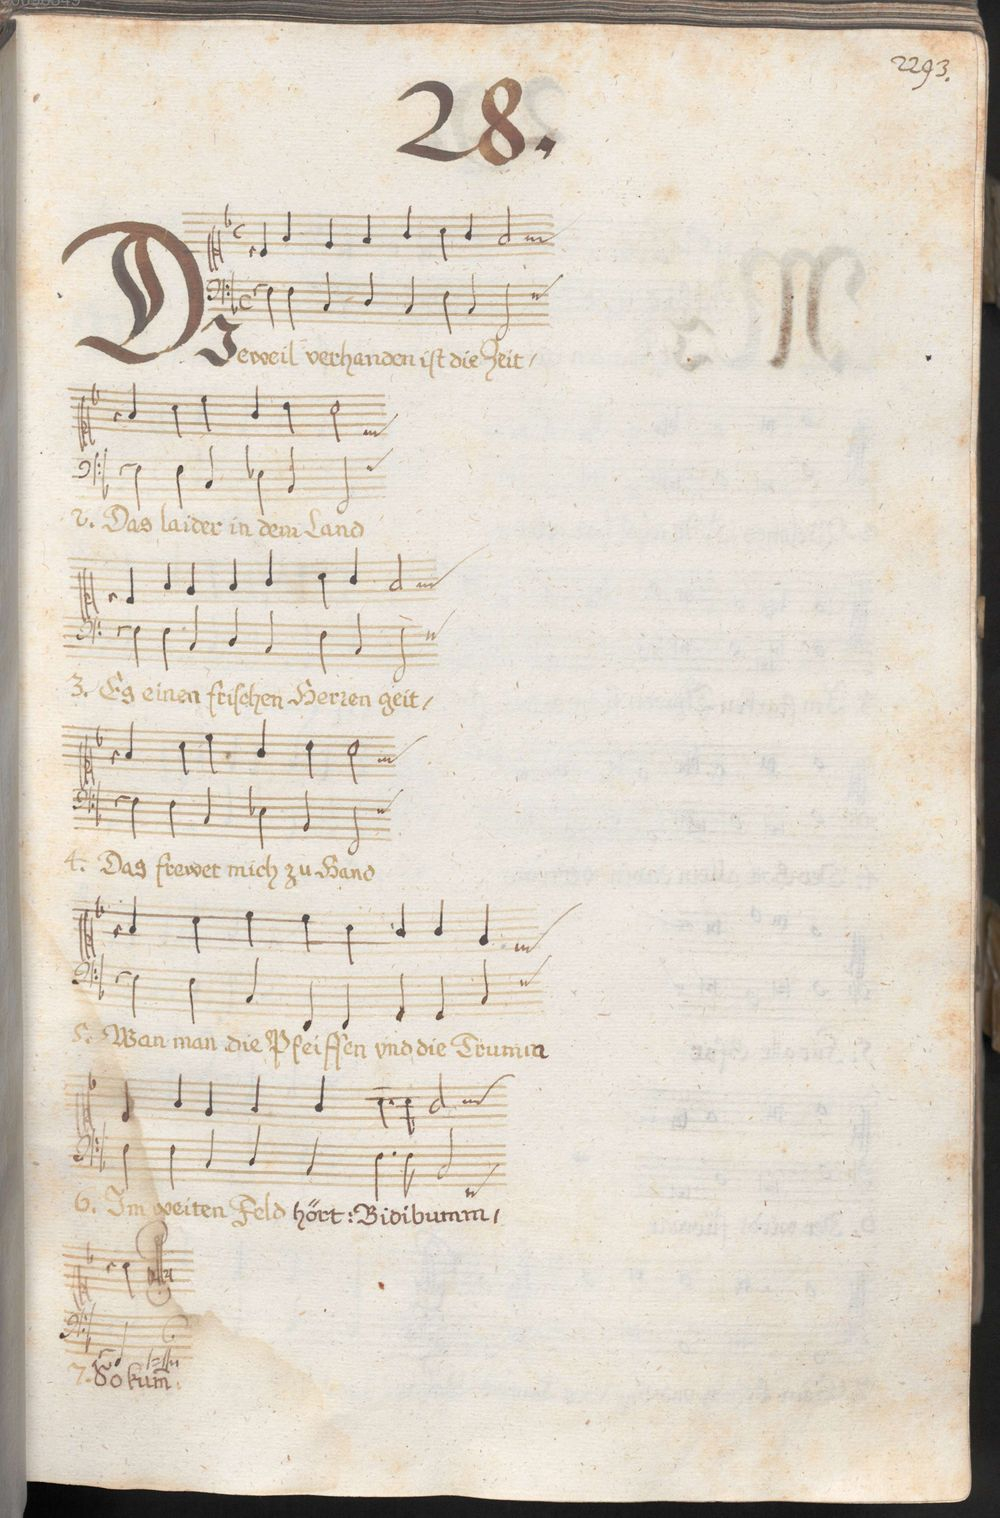 2293.
28.
DIeweil verhanden ist die Zeit /
2. Das laider in dem Land
3. Es einen frischen Herren geit /
4. Das frewet mich zu Hand
5. Wan man die Pfeiffen vnd die Trumm̄
6. Im weiten Feld hört: Bidibumm̄ /
7. So kum̄.